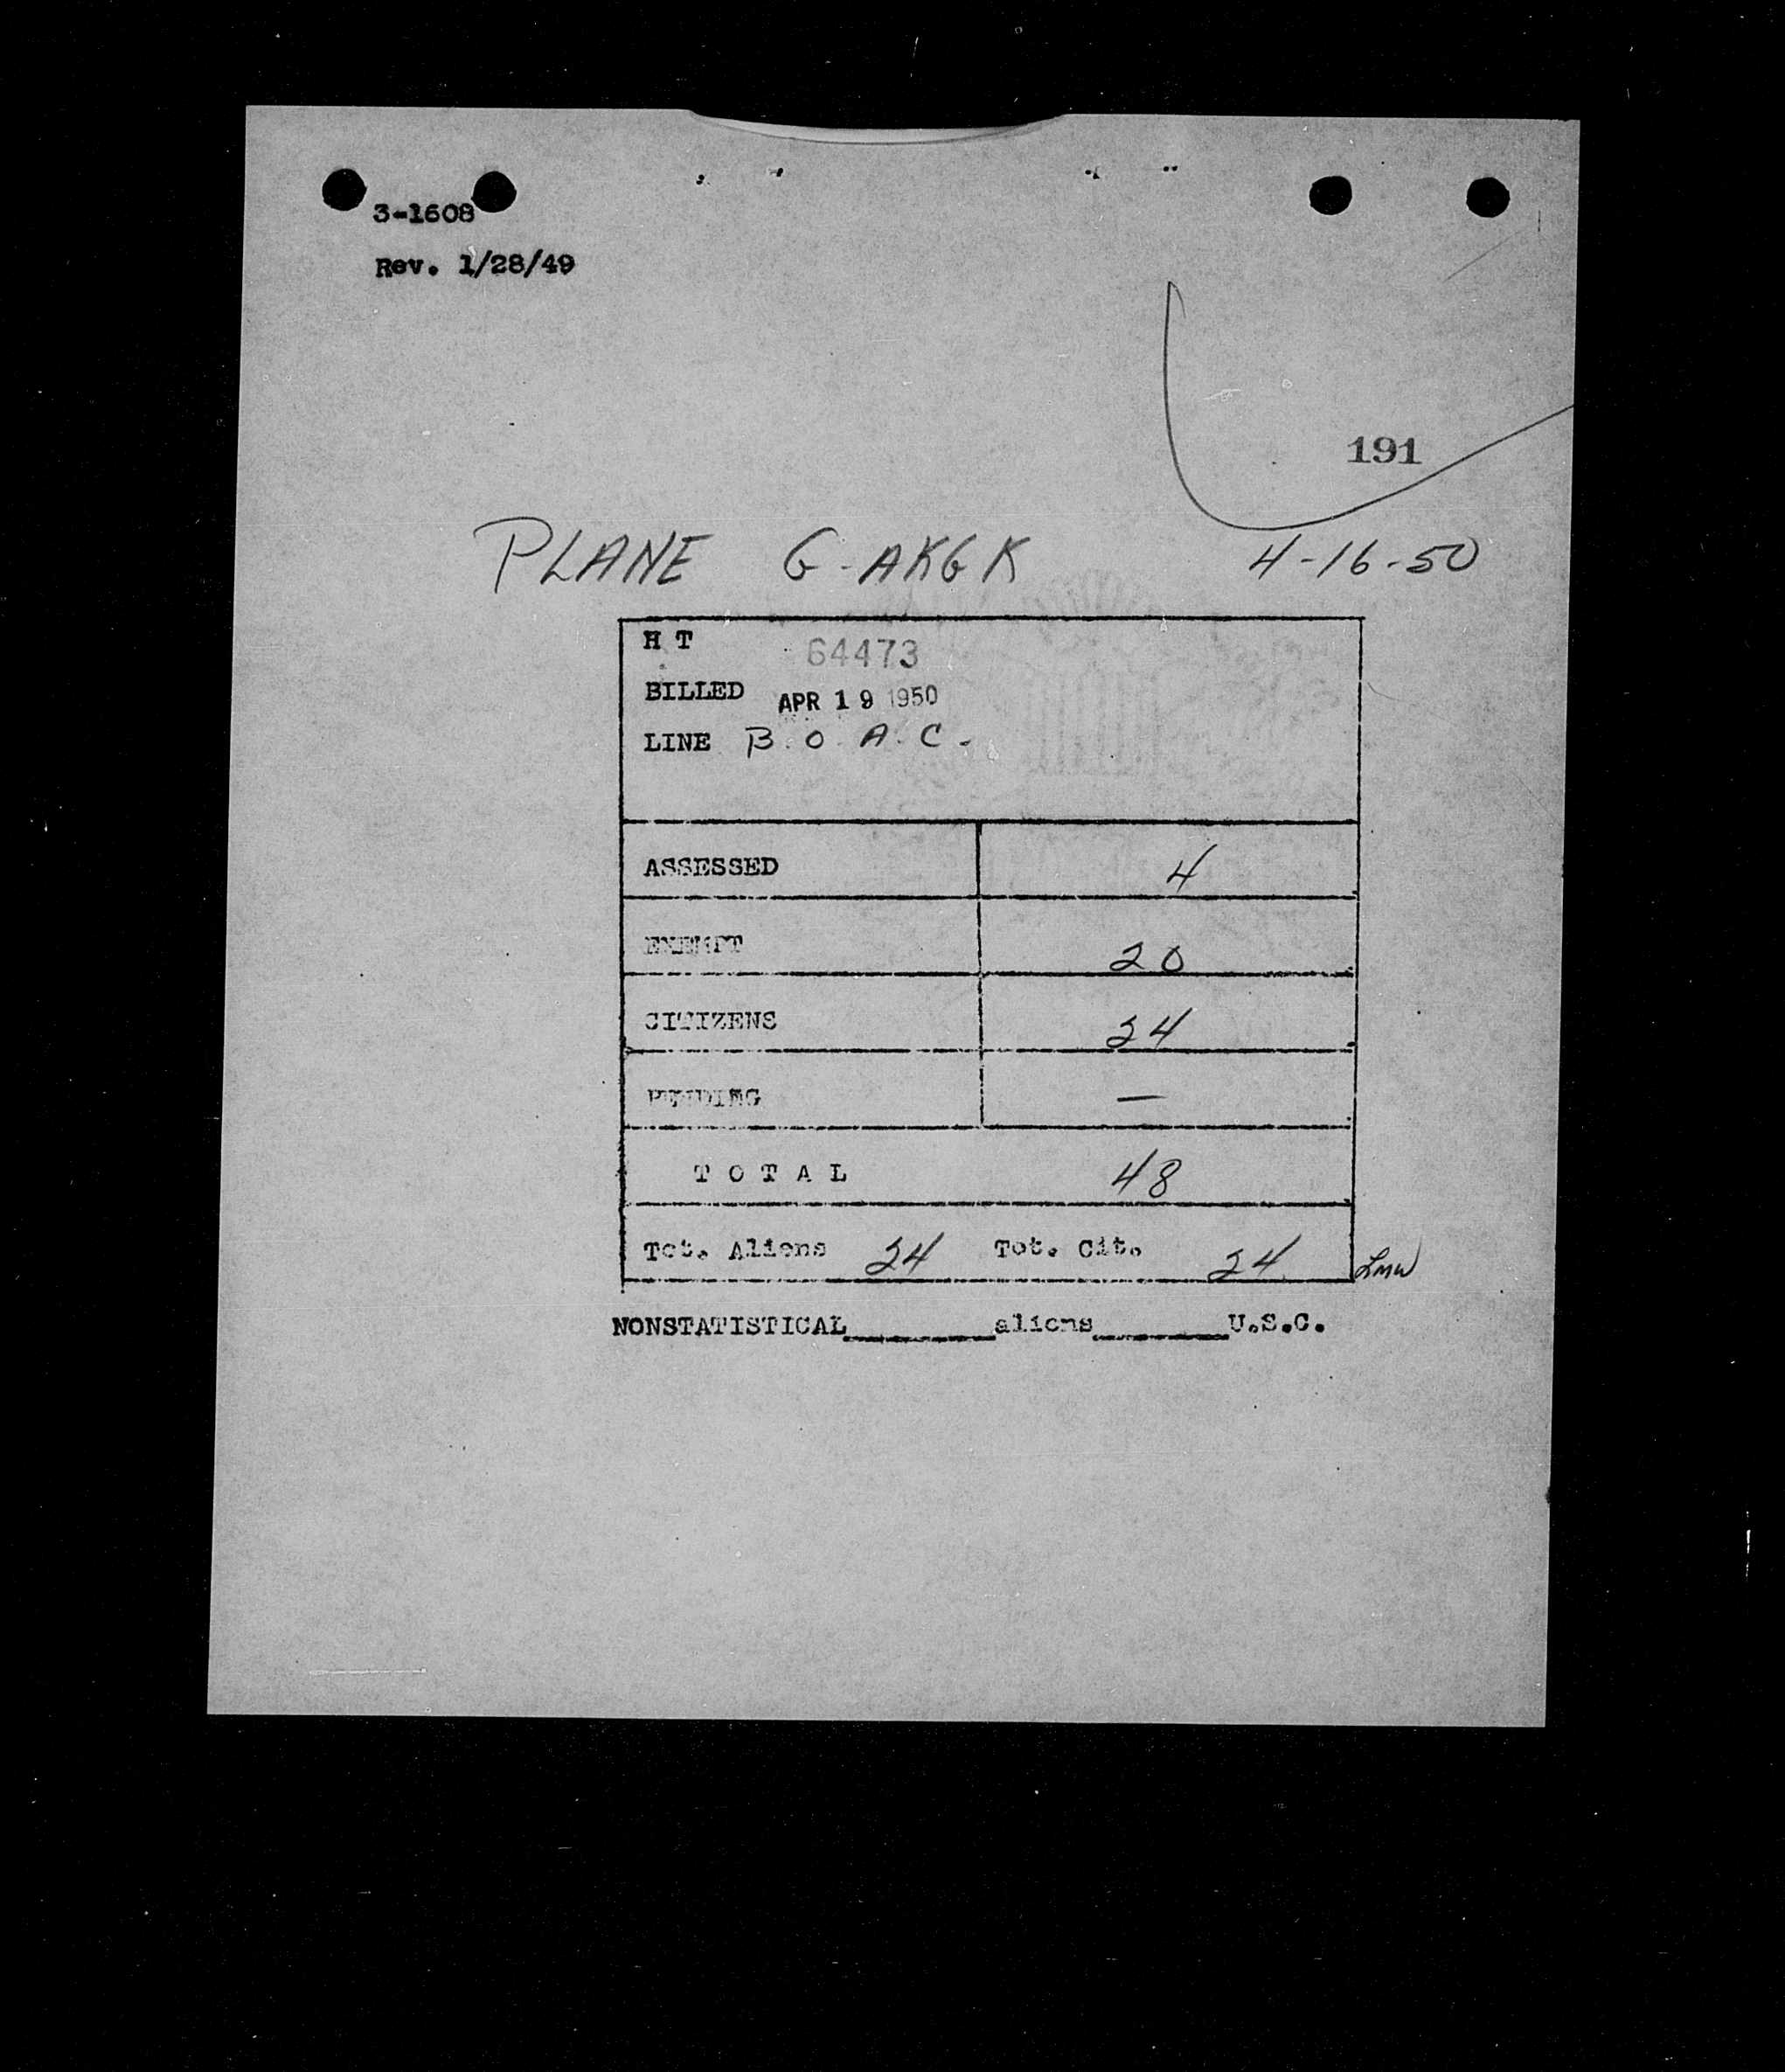 3-1608
Rev. 1/28/49
191
PLANE G-AKGK 4-16-50
H T 64473
BILLED APR 19 1950
LINE B.O.A.C.
ASSESSED 4
EXEMPT 20
CITIZENS 24
PENDING —
T O T A L 48
Tot. Aliens 24 Tot. Cit. 24 Lmw
NONSTATISTICAL________aliens________U.S.C.